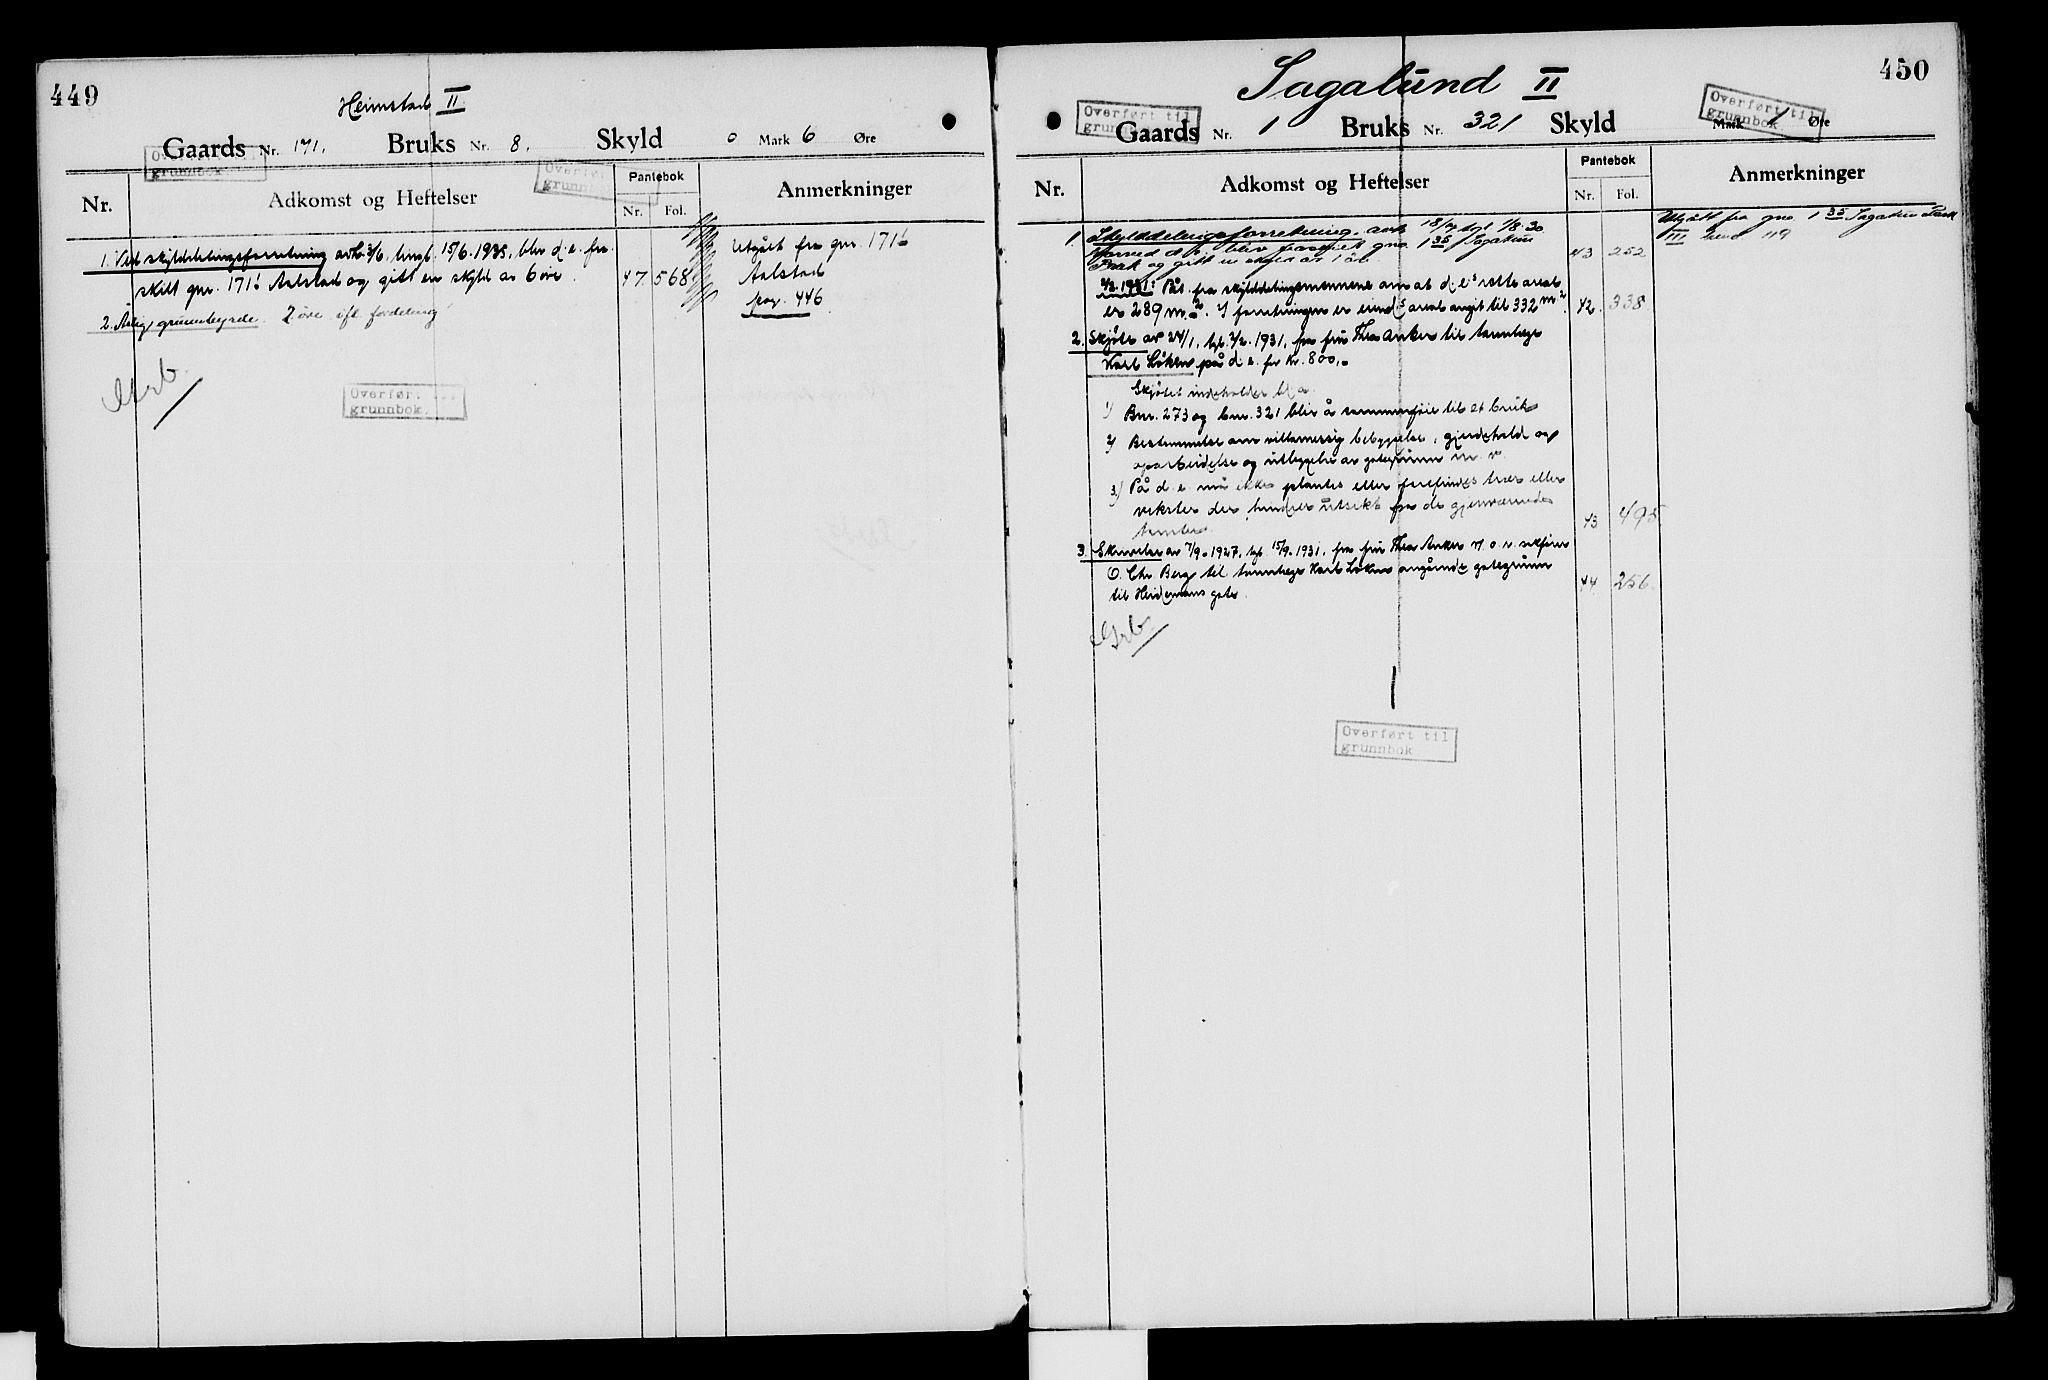 449
Heimstad II
Gaards Nr. 171. Bruks Nr. 8. Skyld 0 Mark 6 Øre
Overført til
grunnbok
Overført
grunnbok
Nr. Adkomst og Heftelser Pantebok Anmerkninger
Nr. Fol.
1. Ved skylddelingsforretning avh. 3/6, tingl. 15/6. 1935, blev d. e. fra-
skilt gnr. 171.1 Aalstad og gitt en skyld av 6 øre. 47 568
Utgått fra gnr. 171.1
Aalstad
pag. 446
2. Årlig grunnbyrde 2 øre ifl. fordeling
Grb.
Overført til
grunnbok.
450
Sagalund II
Gaards Nr. 1 Bruks Nr. 321 Skyld Mark 1 Øre
Overført til
grunnbok
Overført til
grunnbok
Nr. Adkomst og Heftelser Pantebok Anmerkninger
Nr. Fol.
1. Skylddelingsforretning, avh. 18/7 tgl 1/8. 30
hvorved d. e. blev fraskilt gnr. 1 35 Sagatun
Park og gitt en skyld av 1 øre. 43 252
Utgått fra gnr. 1 35 Sagatun Park
III bind 119
4/2. 1931: Påt. fra skylddelingsmennene om at d. e.s rette areal
er 289 m.2. I forretningen er eiend.s areal angit til 332 m2. 42. 338
2. Skjøte av 24/1, tgl. 3/2. 1931, fra fru Thea Anker til tannlæge
Karl Løken på d. e. for kr. 800,-
Skjøtet indeholder bl. a.
1) Bnr. 273 og bnr. 321 blir å sammenføie til et bruk
2) Bestemmelse om villamessig bebyggelse, gjerdehold og
oparbeidelse og utleggelse av gategrunn m. v.
3) På d. e. må ikke plantes eller forefinnes trær eller
vekster der hindrer utsikt fra de gjenværende
tomter. 43 495
3. Skrivelse av 7/9. 1927, tgl. 15/9. 1931, fra fru Thea Anker v. o. r. sakfører
O. Chr. Berg til tannlæge Karl Løken angående gategrunn
til Heidemans gate. 44 256.
Grb.
Overført til
grunnbok